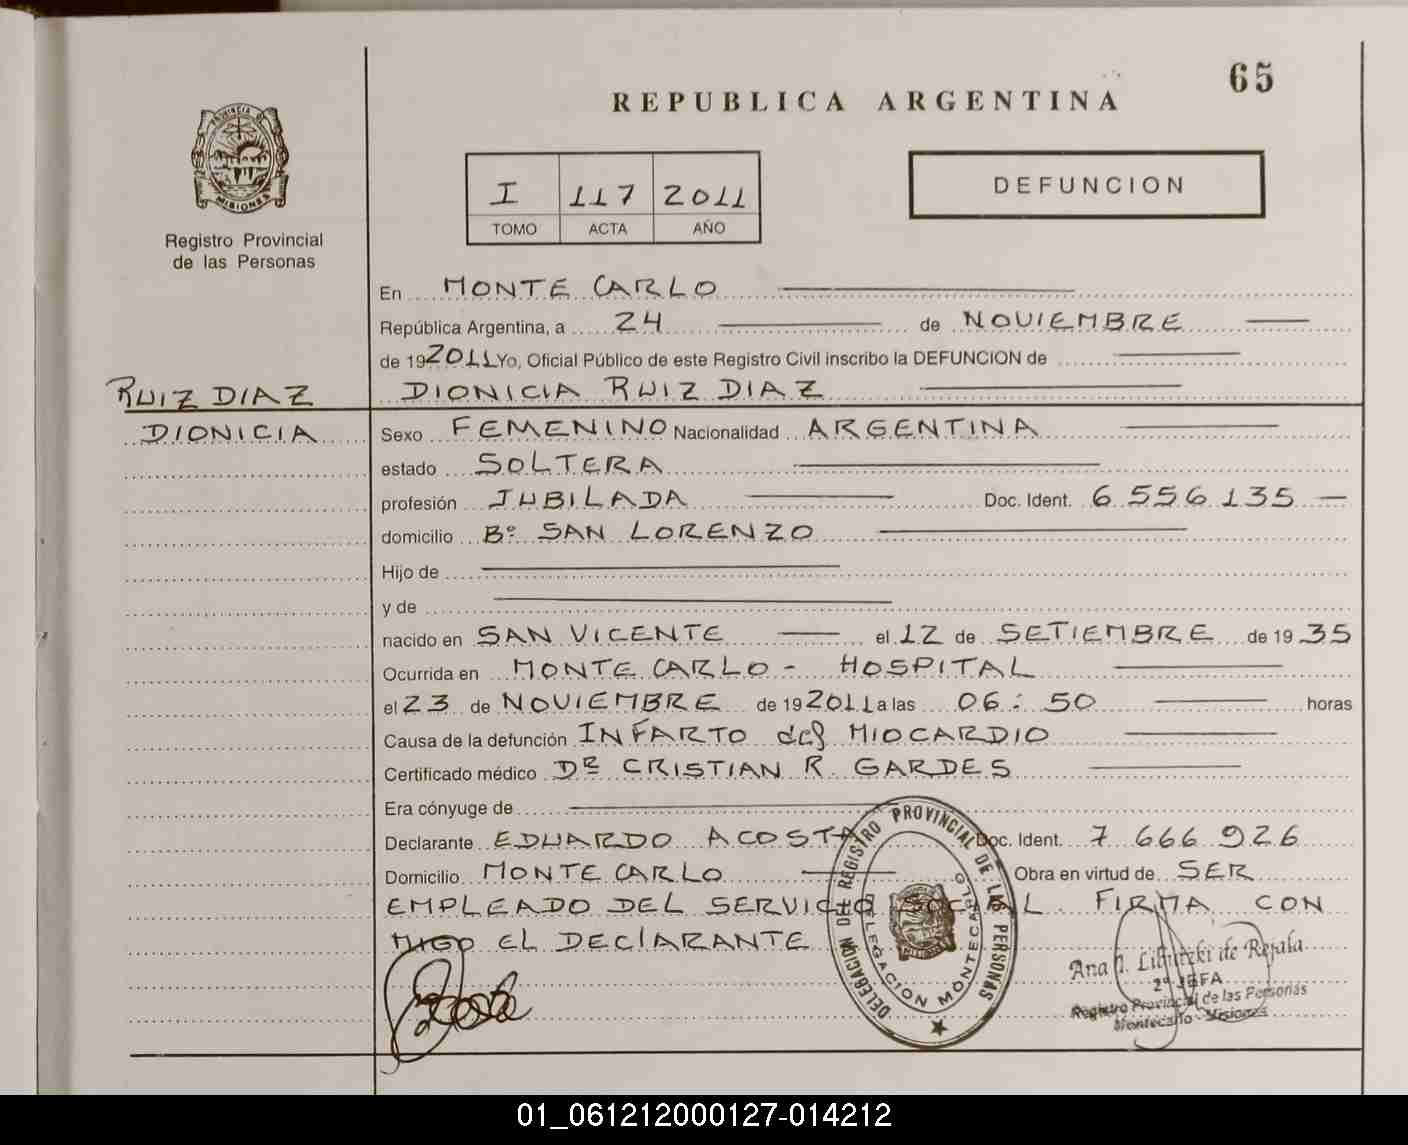 65
REPUBLICA ARGENTINA
PROVINCIA D
MISIONES
Registro Provincial
de las Personas
I 117 2011
TOMO ACTA AÑO
DEFUNCION
En MONTE CARLO
República Argentina, a 24 de NOVIEMBRE
de 192011 Yo, Oficial Público de este Registro Civil inscribo la DEFUNCION de
RUIZ DIAZ DIONICIA RUIZ DIAZ
DIONICIA Sexo FEMENINO Nacionalidad ARGENTINA
estado SOLTERA
profesión JUBILADA Doc. Ident. 6 556 135
domicilio Bº SAN LORENZO
Hijo de
y de
nacido en SAN VICENTE el 12 de SETIEMBRE de 19 35
Ocurrida en MONTE CARLO - HOSPITAL
el 23 de NOVIEMBRE de 192011 a las 06:50 horas
Causa de la defunción INFARTO del MIOCARDIO
Certificado médico DR CRISTIAN R. GARDES
Era cónyuge de
Declarante EDUARDO ACOSTA Doc. Ident. 7 666 926
Domicilio MONTE CARLO Obra en virtud de SER
EMPLEADO DEL SERVICIO SOCIAL. FIRMA CON
MIGO EL DEClARANTE
DELEGACION DEL REGISTRO PROVINCIAL DE LAS PERSONAS
DELEGACION MONTECARLO
2º JEFA
Registro Provincial de las Personas
Montecarlo - Misiones
01_061212000127-014212